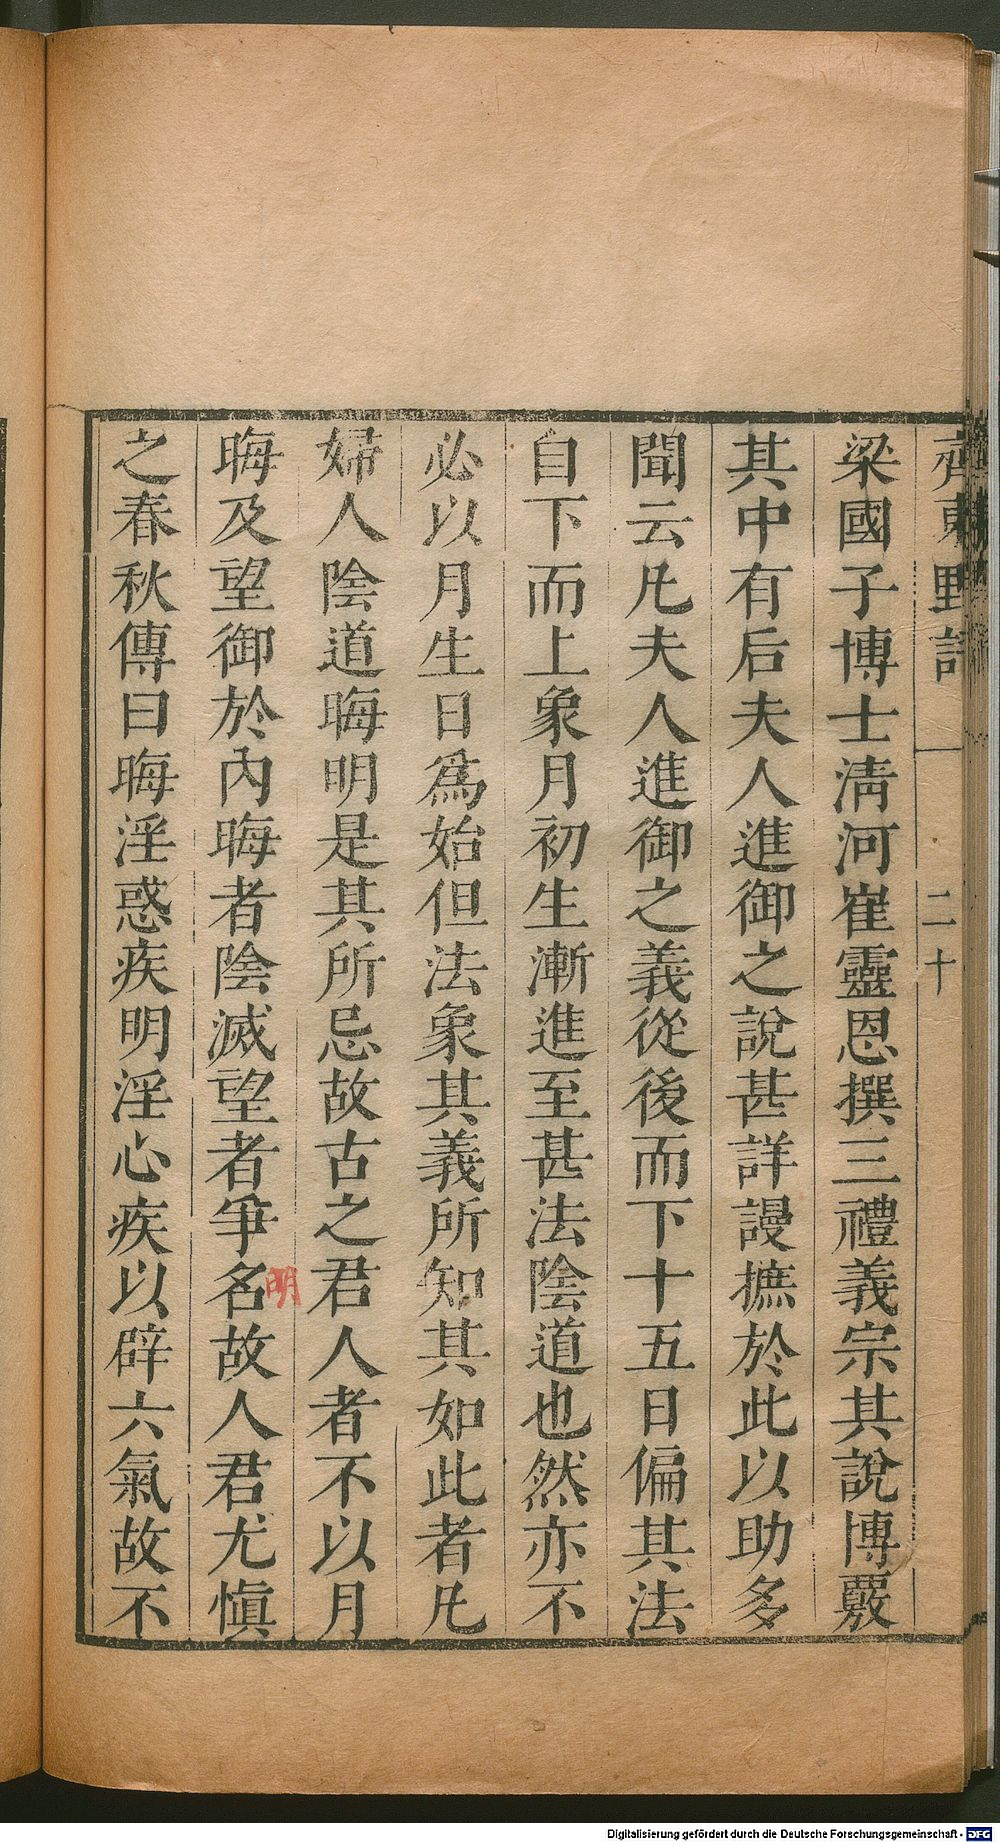 齊東野語 二十
梁國子博士淸河崔靈恩撰三禮義宗其說博覈
其中有后夫人進御之說甚詳謾摭於此以助多
聞云凡夫人進御之義從後而下十五日偏其法
自下而上象月初生漸進至甚法陰道也然亦不
必以月生日爲始但法象其義所知其如此者凡
婦人陰道晦明是其所忌故古之君人者不以月
晦及望御於內晦者陰滅望者爭名故人君尤愼
明
之春秋傳曰晦淫惑疾明淫心疾以辟六氣故不
Digitalisierung gefördert durch die Deutsche Forschungsgemeinschaft - DFG